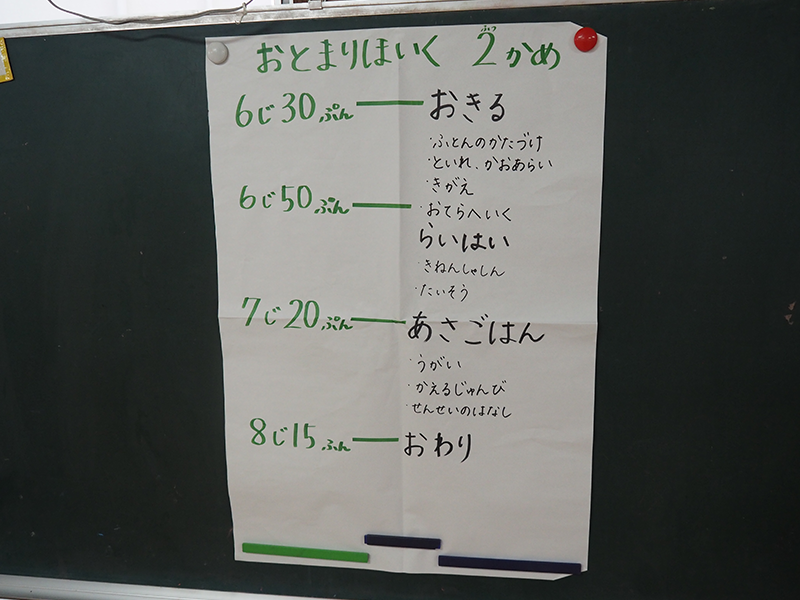 おとまりほいく 2かめ
ふつ
6じ30ぷん おきる
・ふとんのかたづけ
・といれ、かおあらい
・きがえ
6じ50ぷん ・おてらへいく
らいはい
・きねんしゃしん
・たいそう
7じ20ぷん あさごはん
・うがい
・かえるじゅんび
・せんせいのはなし
8じ15ふん おわり